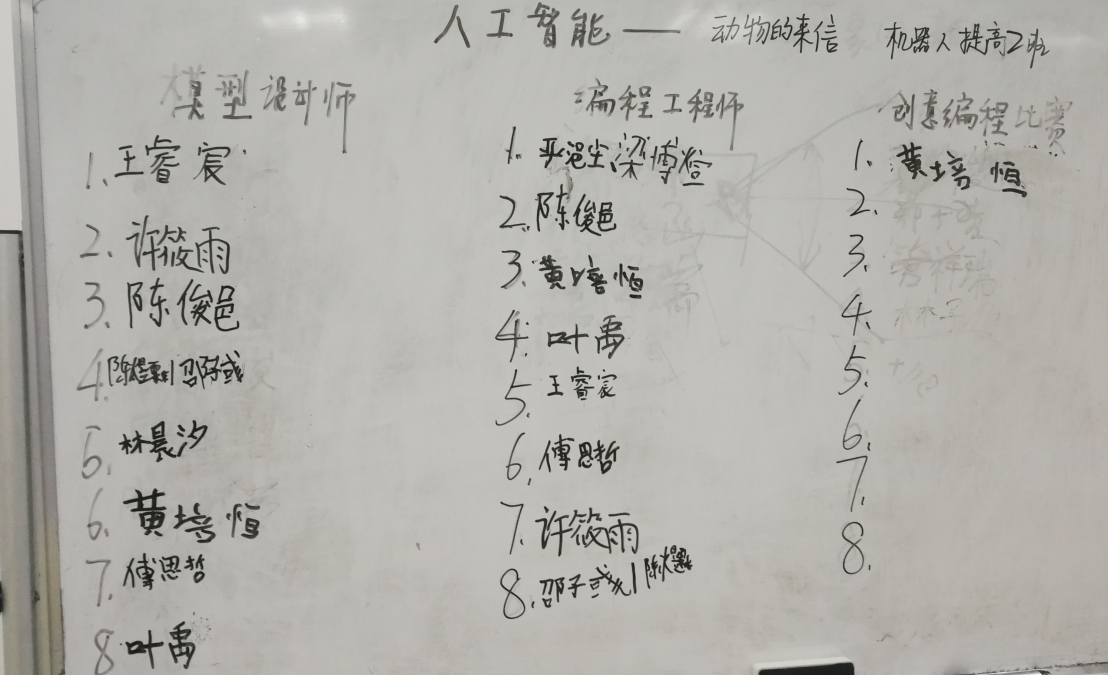 人工智能——动物的来信 机器人提高2班
模型设计师
1.王睿宸
2.许筱雨
3.陈俊邑
4.邵子或
5.林晨汐
6.黄培恒
7.傅思哲
8 叶禹
编程工程师
1.梁博登
2.陈俊邑
3.黄培恒
4.叶禹
5.王睿宸
6.傅思哲
7.许筱雨
8.邵子或
创意编程比赛
1.黄培恒
2.
3.
4.
5.
6.
7.
8.